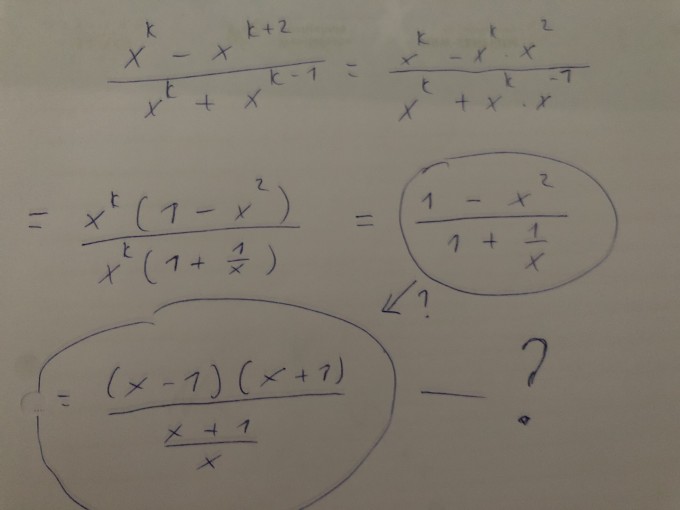 (x^k - x^(k+2)) / (x^k + x^(k-1)) = (x^k - x^k · x^2) / (x^k + x^k · x^(-1))
= (x^k (1 - x^2)) / (x^k (1 + 1/x)) = (1 - x^2) / (1 + 1/x)
↙ ?
= ((x - 1)(x + 1)) / ((x + 1)/x) — ?